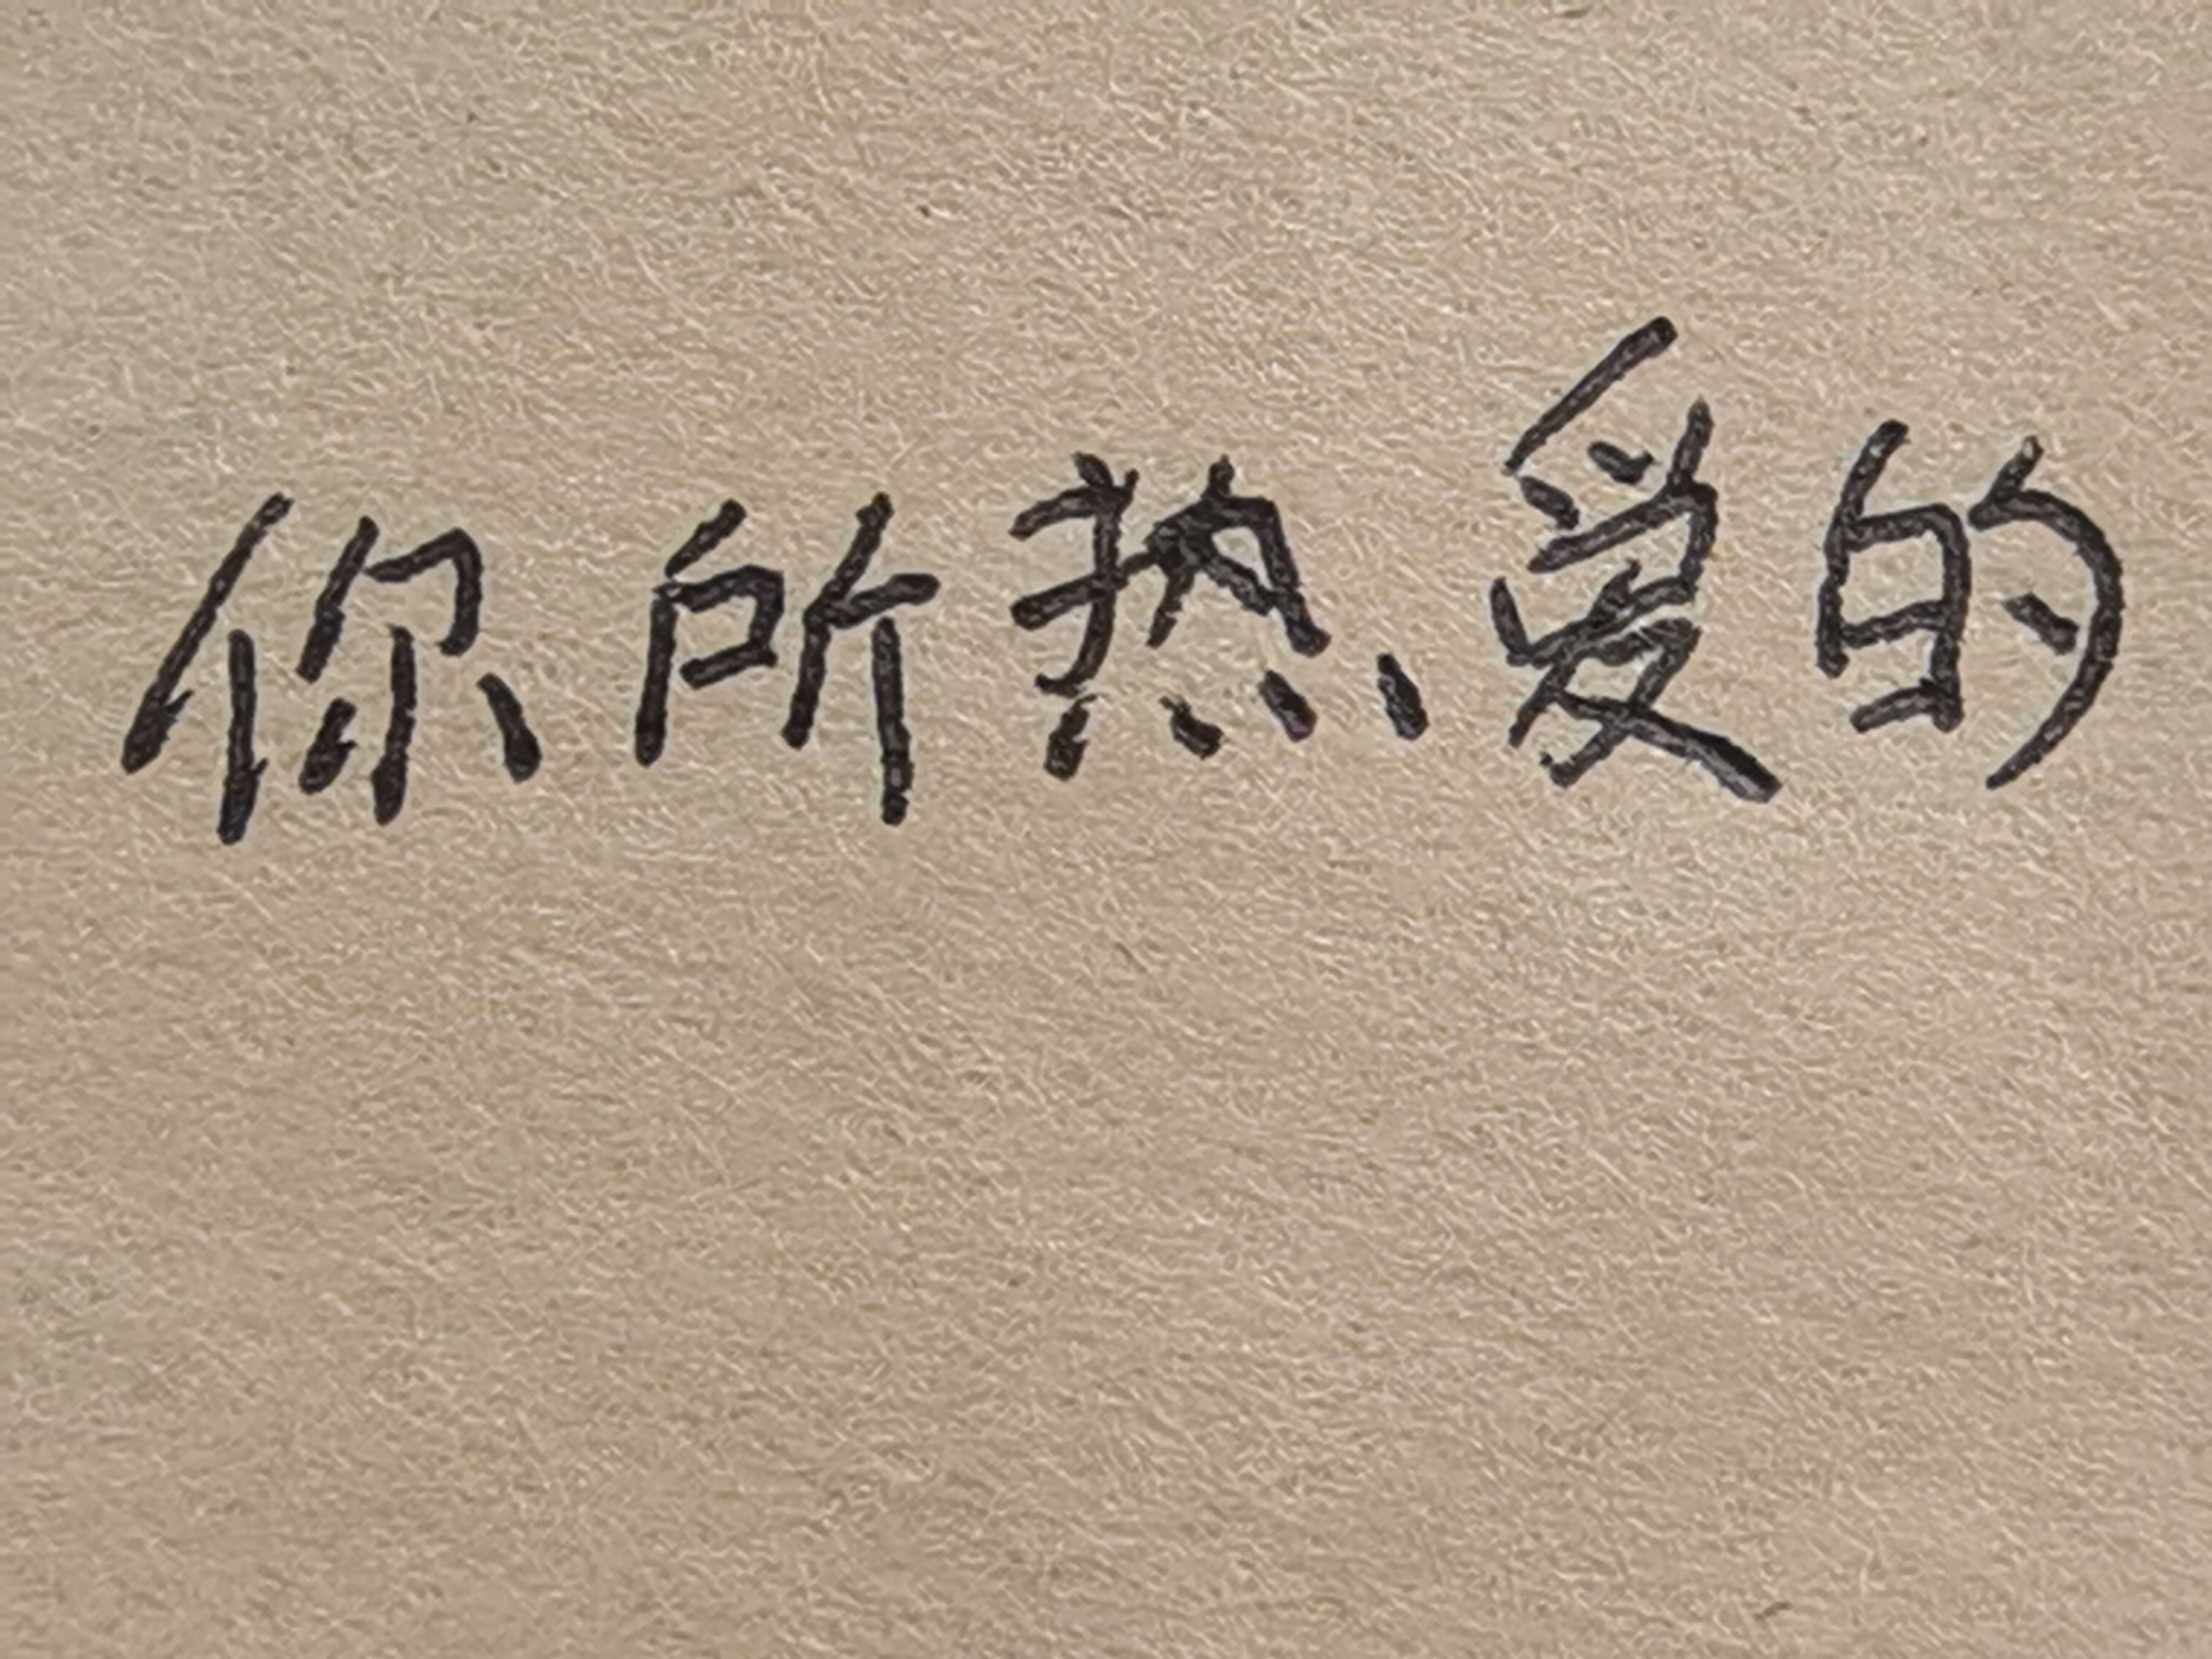 你所热爱的